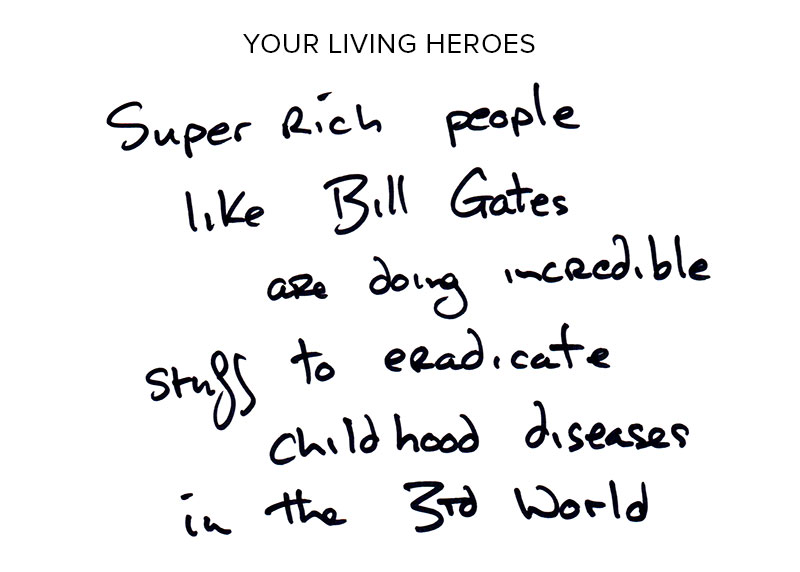 YOUR LIVING HEROES
Super Rich people
like Bill Gates
are doing incredible
stuff to eradicate
childhood diseases
in the 3rd World